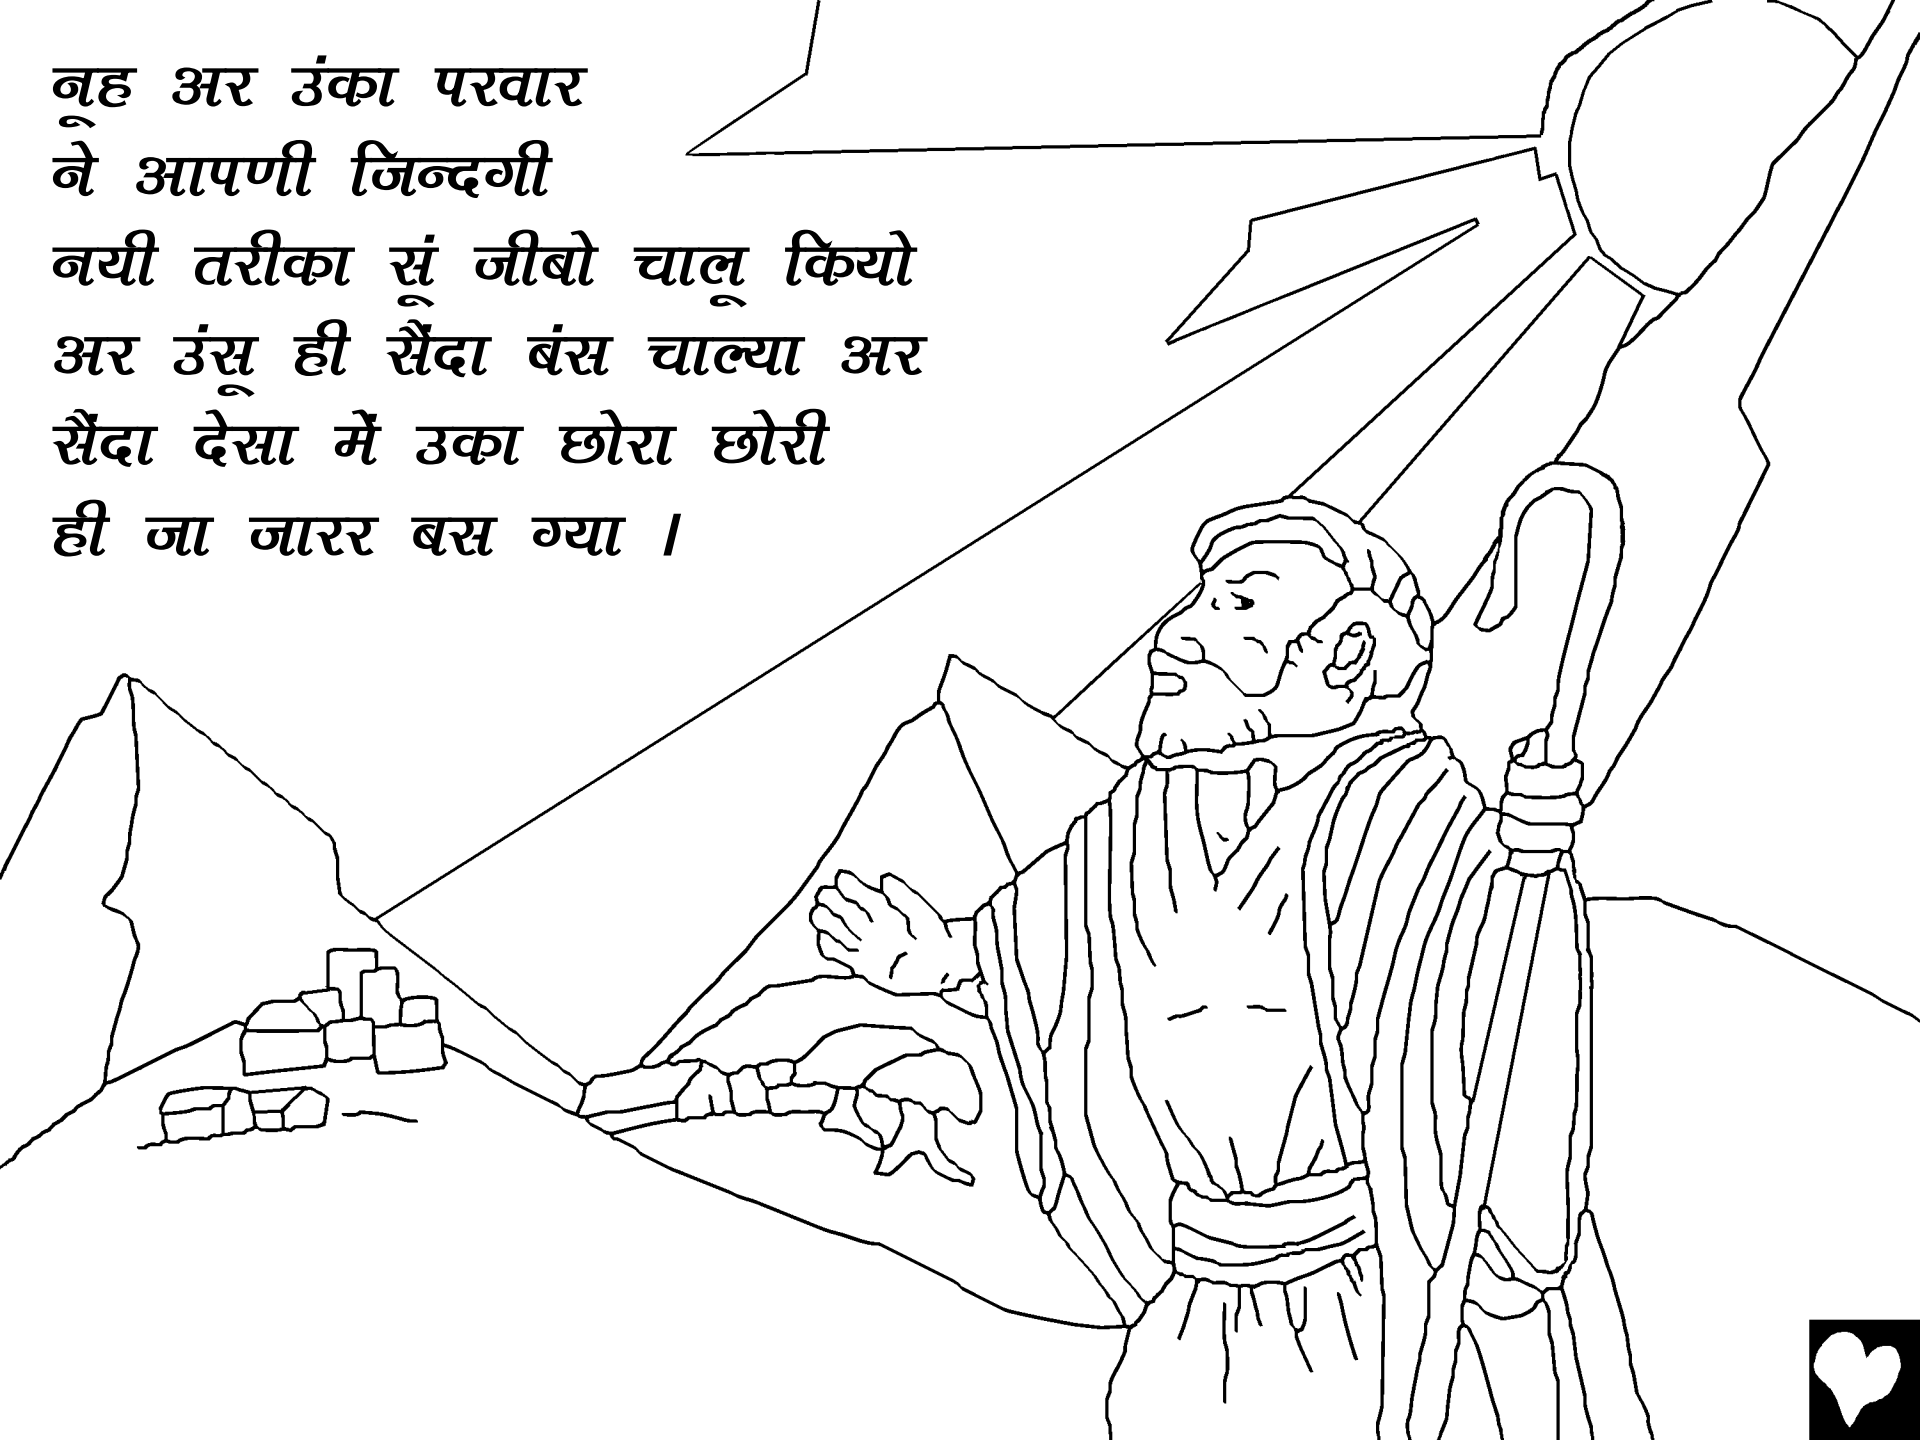 नूह अर उंका परवार
ने आपणी जिन्दगी
नयी तरीका सूं जीबो चालू कियो
अर उंसू ही सैंदा बंस चाल्या अर
सैंदा देसा में उका छोरा छोरी
ही जा जारर बस ग्या ।